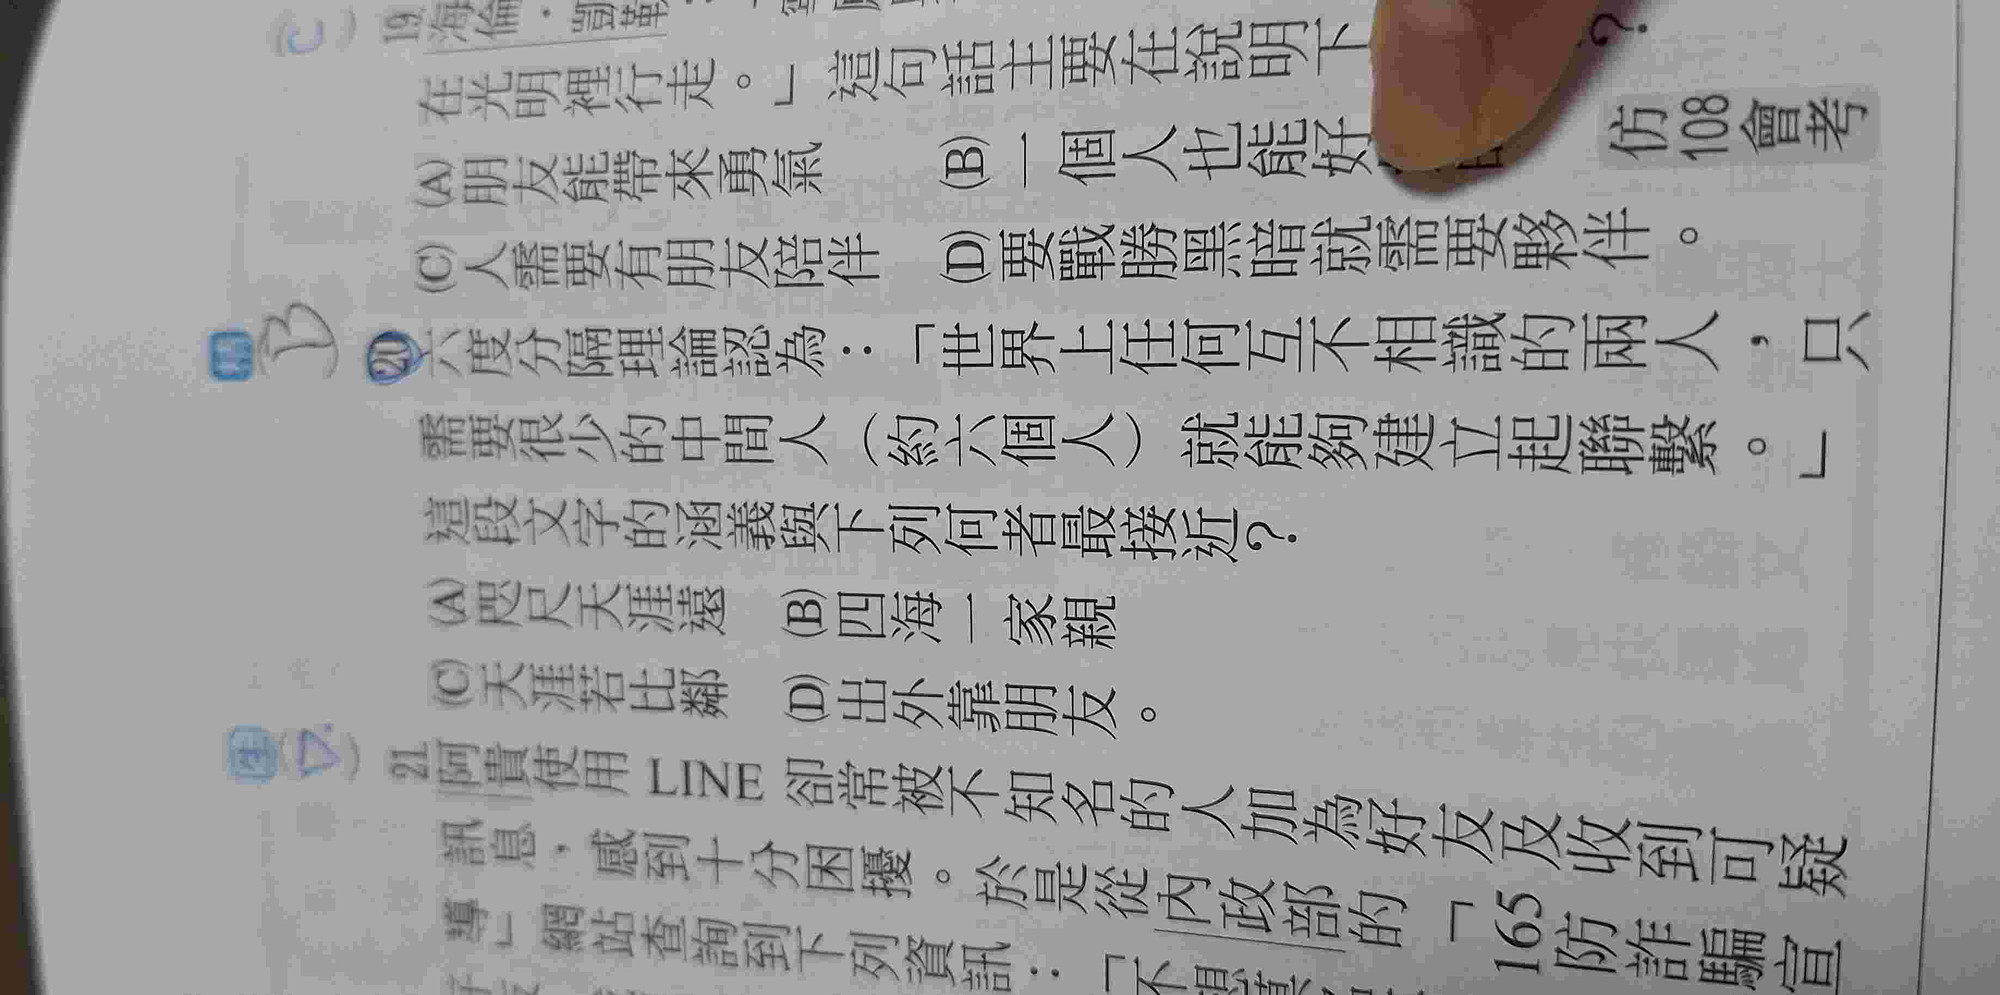 (C) 19海倫．
在光明裡行走。」這句話主要在說明下 ?
(A)朋友能帶來勇氣 (B)一個人也能好
(C)人需要有朋友陪伴 (D)要戰勝黑暗就需要夥伴。
仿108會考
(B) 20六度分隔理論認為：「世界上任何互不相識的兩人，只
需要很少的中間人（約六個人）就能夠建立起聯繫。」
這段文字的涵義與下列何者最接近?
(A)咫尺天涯遠 (B)四海一家親
(C)天涯若比鄰 (D)出外靠朋友。
( ) 21阿貴使用 LINE 卻常被不知名的人加為好友及收到可疑
訊息，感到十分困擾。於是從內政部的「165防詐騙宣
導」網站查詢到下列資訊：「不想